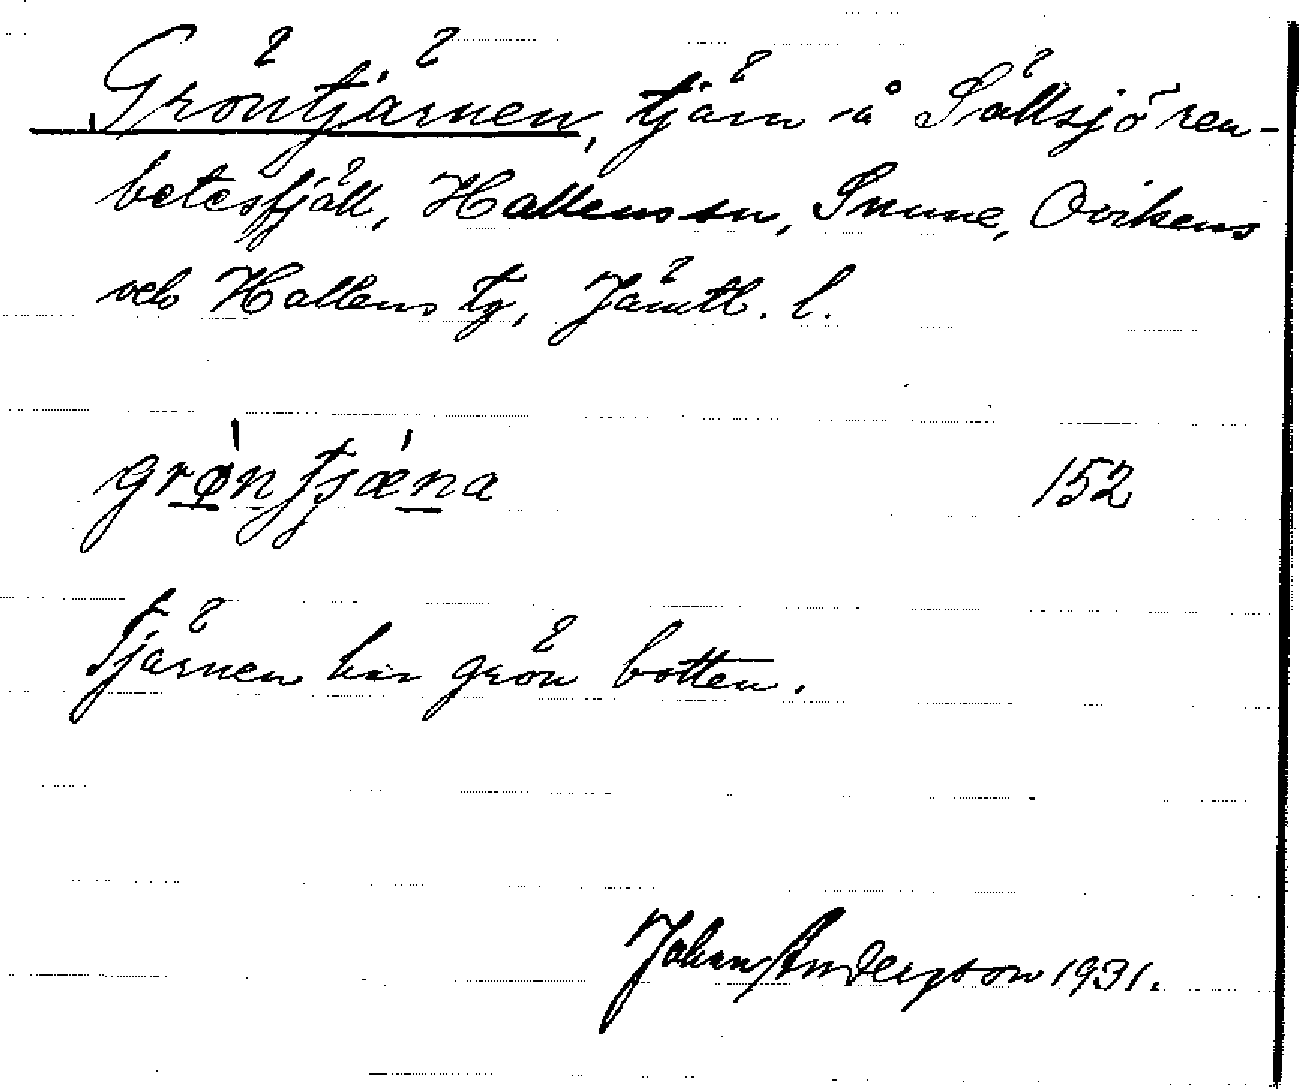 Gröntjärnen, tjärn å Sällsjö ren-
betesfjäll, Hallens sn, Sunne, Ovikens
och Hallens tg, Jämtl. l.
grøntjæna 152
Tjärnen har grön botten.
Johan Anderzson 1931.